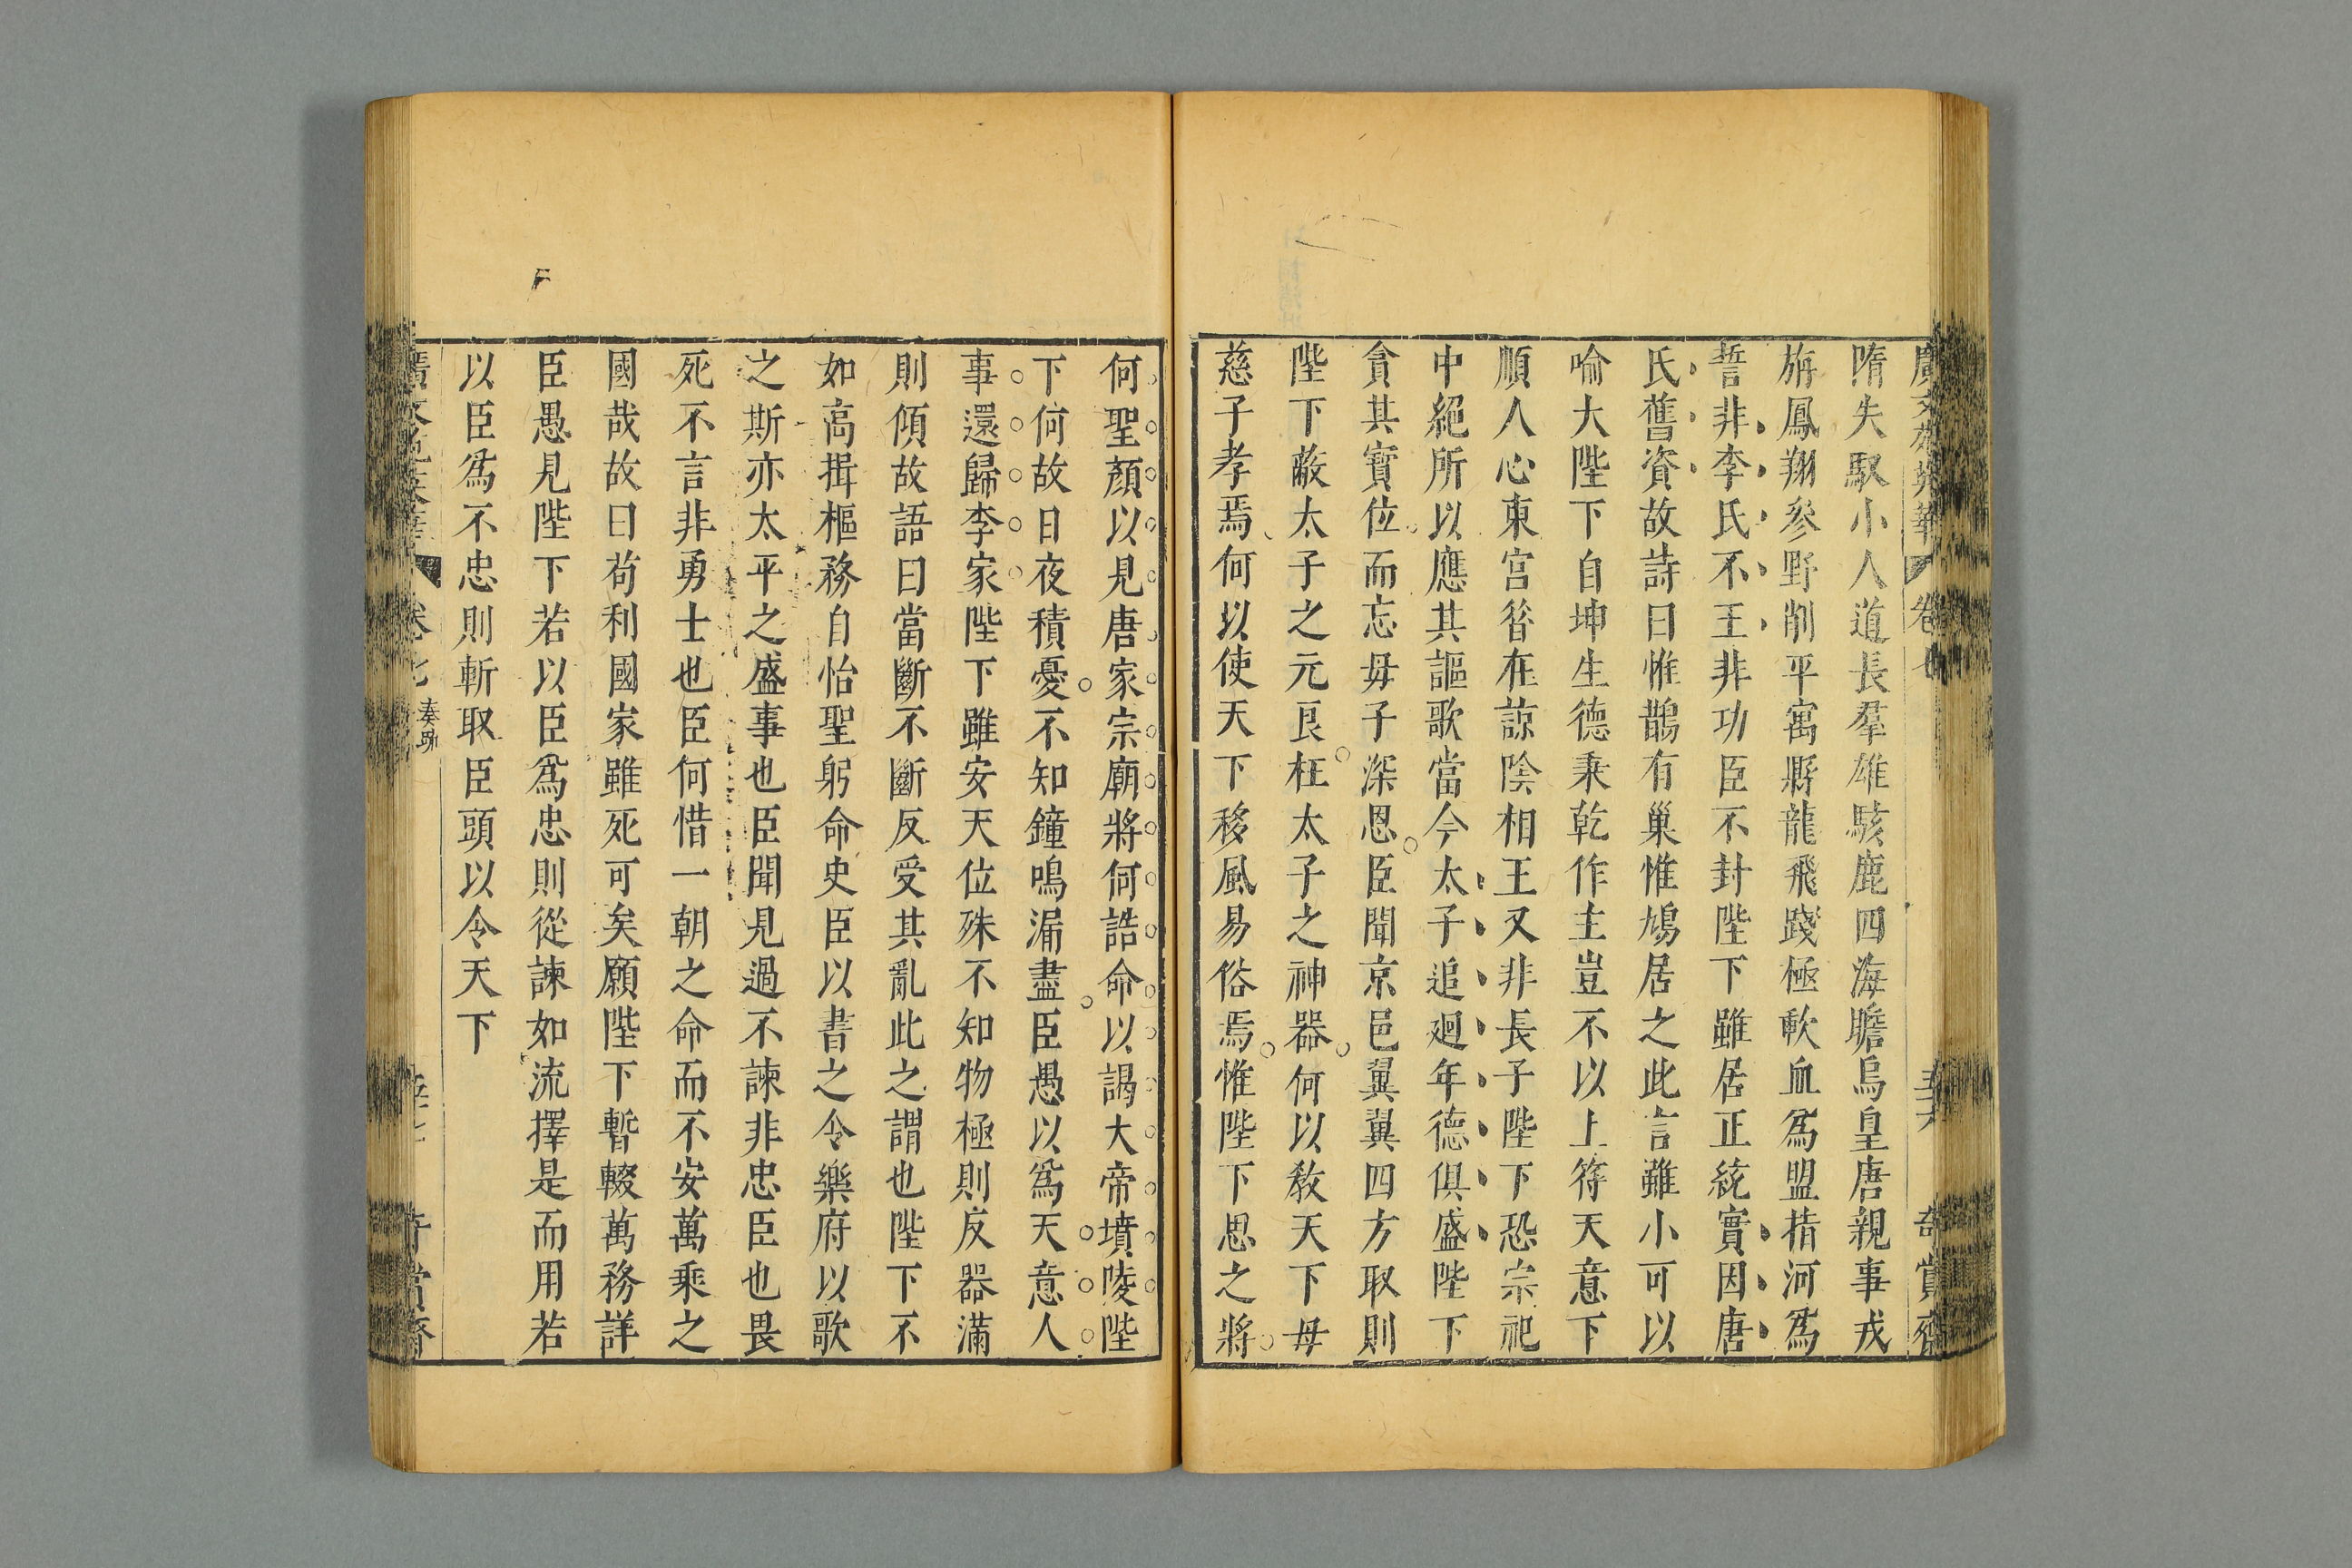 隋失馭小人道長羣雄駭鹿四海瞻烏皇唐親事戎
旃鳳翔參野削平寓縣龍飛踐極歃血爲盟指河爲
誓非李氏不王非功臣不封陛下雖居正統實因唐
氏舊資故詩曰惟鵲有巢惟鳩居之此言雖小可以
喻大陛下自坤生德乘乾作主豈不以上符天意下
順人心東宮昝在諒陰相王又非長子陛下恐宗祀
中絕所以應其謳歌當今太子追廻年德俱盛陛下
貪其寶位而忘母子深恩臣聞京邑翼翼四方取則
陛下蔽太子之元良枉太子之神器何以敎天下母
慈子孝焉何以使天下移風易俗焉惟陛下思之將
何聖顏以見唐家宗廟將何誥命以謁大帝墳陵陛
下何故日夜積憂不知鐘鳴漏盡臣愚以爲天意人
事還歸李家陛下雖安天位殊不知物極則反器滿
則傾故語曰當斷不斷反受其亂此之謂也陛下不
如高揖樞務自怡聖躬命史臣以書之令樂府以歌
之斯亦太平之盛事也臣聞見過不諫非忠臣也畏
死不言非勇士也臣何惜一朝之命而不安萬乘之
國哉故曰苟利國家雖死可矣願陛下暫輟萬務詳
臣愚見陛下若以臣爲忠則從諫如流擇是而用若
以臣爲不忠則斬取臣頭以令天下